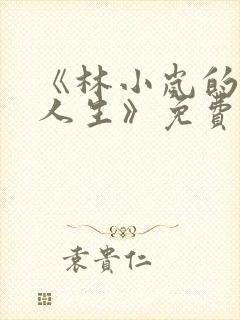 《林小岚的
人生》免費
袁貴仁